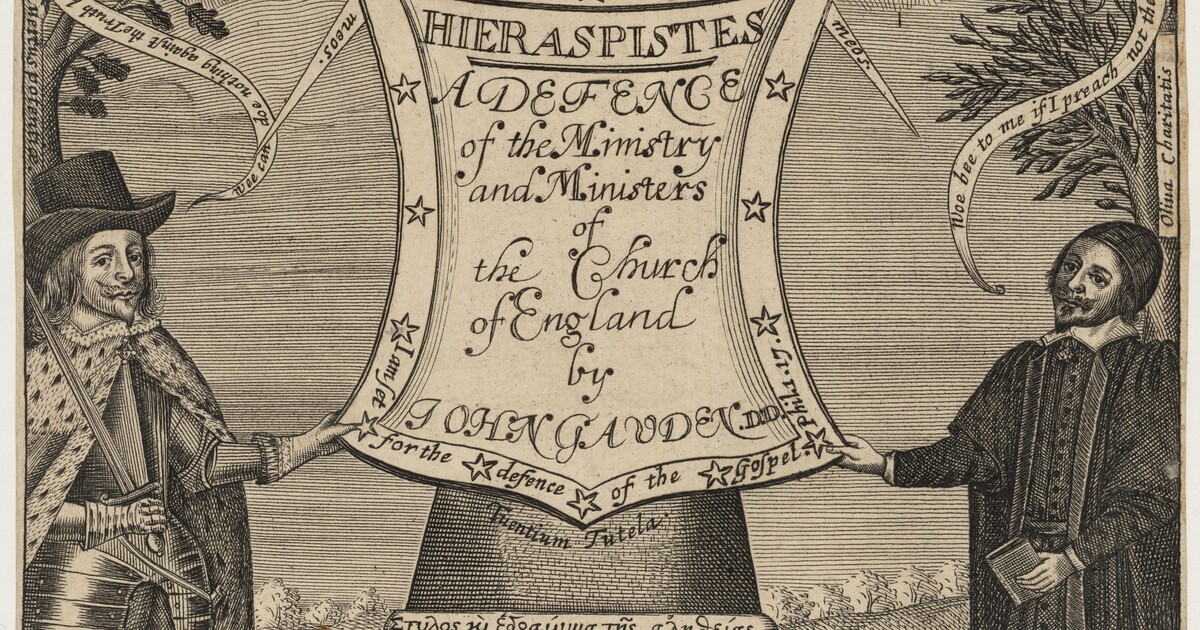 HIERASPISTES
A DEFENCE
of the Ministry
and Ministers
of
the Church
of England
by
IOHN GAUDEN. D.D.
I am set for the defence of the Gospel. Phil. 1. 17.
wee can do nothing against the Truth
meos.
meos.
Woe bee to me if I preach not the
Oliva Charitatis
Tuentium Tutela
Στυλος κι ἑδραίωμα της αληθείας